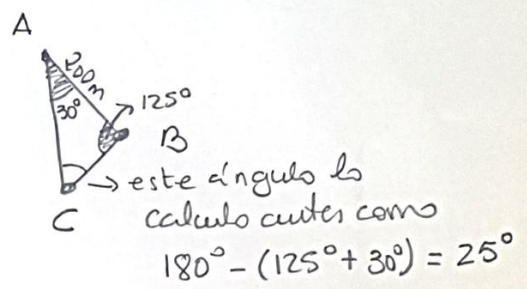 A
200m
30°
125°
B
C
→ este ángulo lo
calculo antes como
180° - (125° + 30°) = 25°